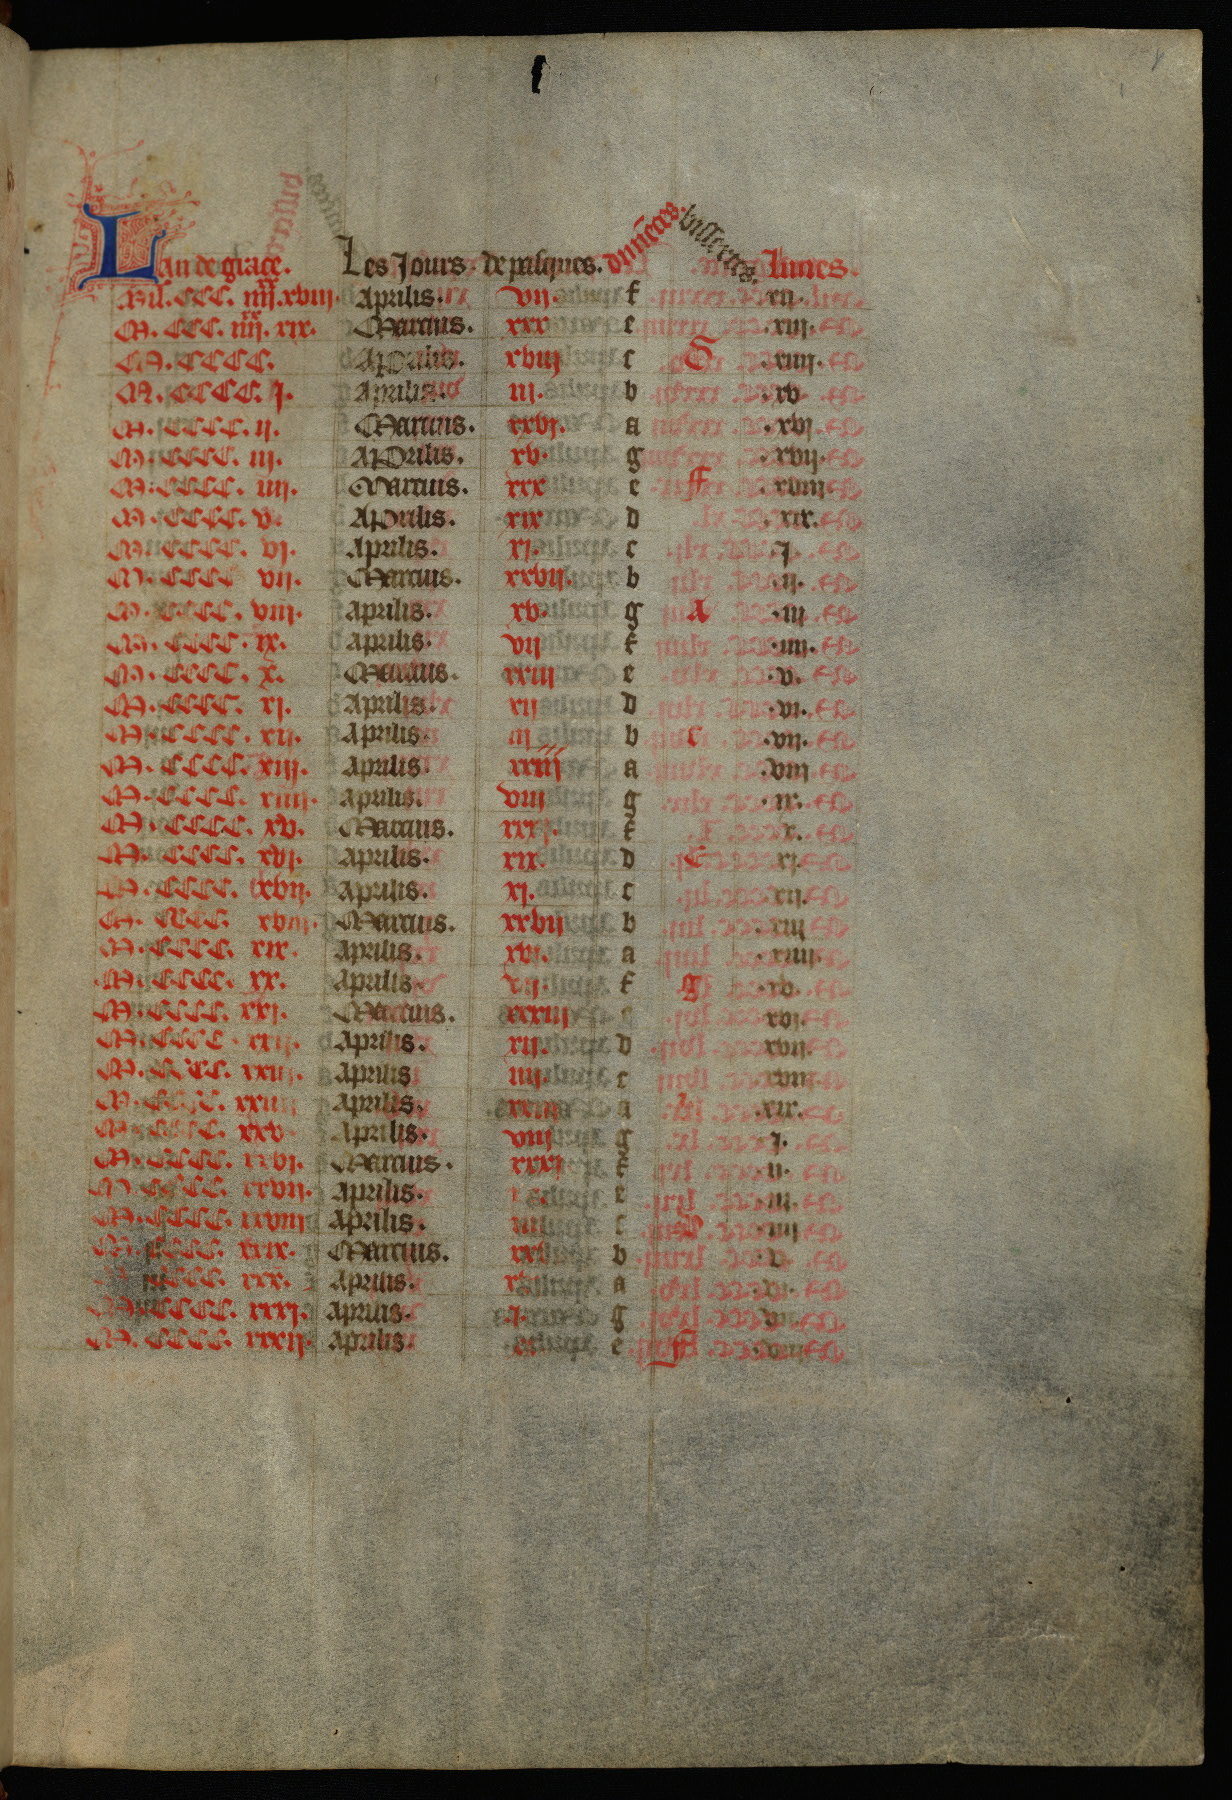 Lan de grace. Les Jours de pasques. dnnēces. bissextes. lunes.
Mil. CCC. iiij.xx xviij Aprilis. vij. f xij.
M. CCC. iiij.xx xix. Marcius. xxx e .xiij.
M. CCCC. Aprilis. xviij c .xiiij.
M. CCCC. j. Aprilis. iij. b .xv
M. CCCC. ij. Marcius. xxvj. a .xvj.
M. CCCC. iij. Aprilis. xv. g .xvij.
M. CCCC. iiij. Marcius. xxx e ff .xviij.
M. CCCC. v. Aprilis. xix d .xix.
M. CCCC. vj. Aprilis. xj. c .j.
M. CCCC vij. Marcius. xxvij. b .ij.
M. CCCC. viij. Aprilis. xv. g A .iij
M. CCCC. ix. Aprilis. vij f .iiij.
M. CCCC. x. Marcius. xxiii e .v.
M. CCCC. xj. Aprilis. xij d .vi.
M. CCCC. xij. Aprilis. iij b c .vij.
M. CCCC. xiij. Aprilis. a .viij
M. CCCC. xiiij. Aprilis. viij g .ix.
M. CCCC. xv. Marcius. xxxj. f x.
M. CCCC. xvj. Aprilis. xix. d E xj.
M. CCCC. xvij. Aprilis. xj. c xij.
M. CCCC. xviij. Marcius. xxvij b xiij
M. CCCC. xix. Aprilis. xvi. a .xiiij.
M. CCCC. xx. Aprilis. vij. f g .xv.
M. CCCC. xxj. Marcius. xxiij xvj.
M. CCCC. xxij. Aprilis. xij. d xvij.
M. CCCC. xxiij. Aprilis iiij. c xviij.
M. CCCC. xxiiij Aprilis. xxiij a .xix.
M. CCCC. xxv. Aprilis. viij g .j.
M. CCCC. xxvj. Marcius. xxxj f .ij.
M. CCCC. xxvij. Aprilis. e .iij.
M. CCCC. xxviij Aprilis. iiij c .iiij
M. CCCC. xxix. Marcius. b .v
M. CCCC. xxx. Aprilis. a .vi.
M. CCCC. xxxj. Aprilis. j. g
M. CCCC. xxxij. Aprilis. e F .viij